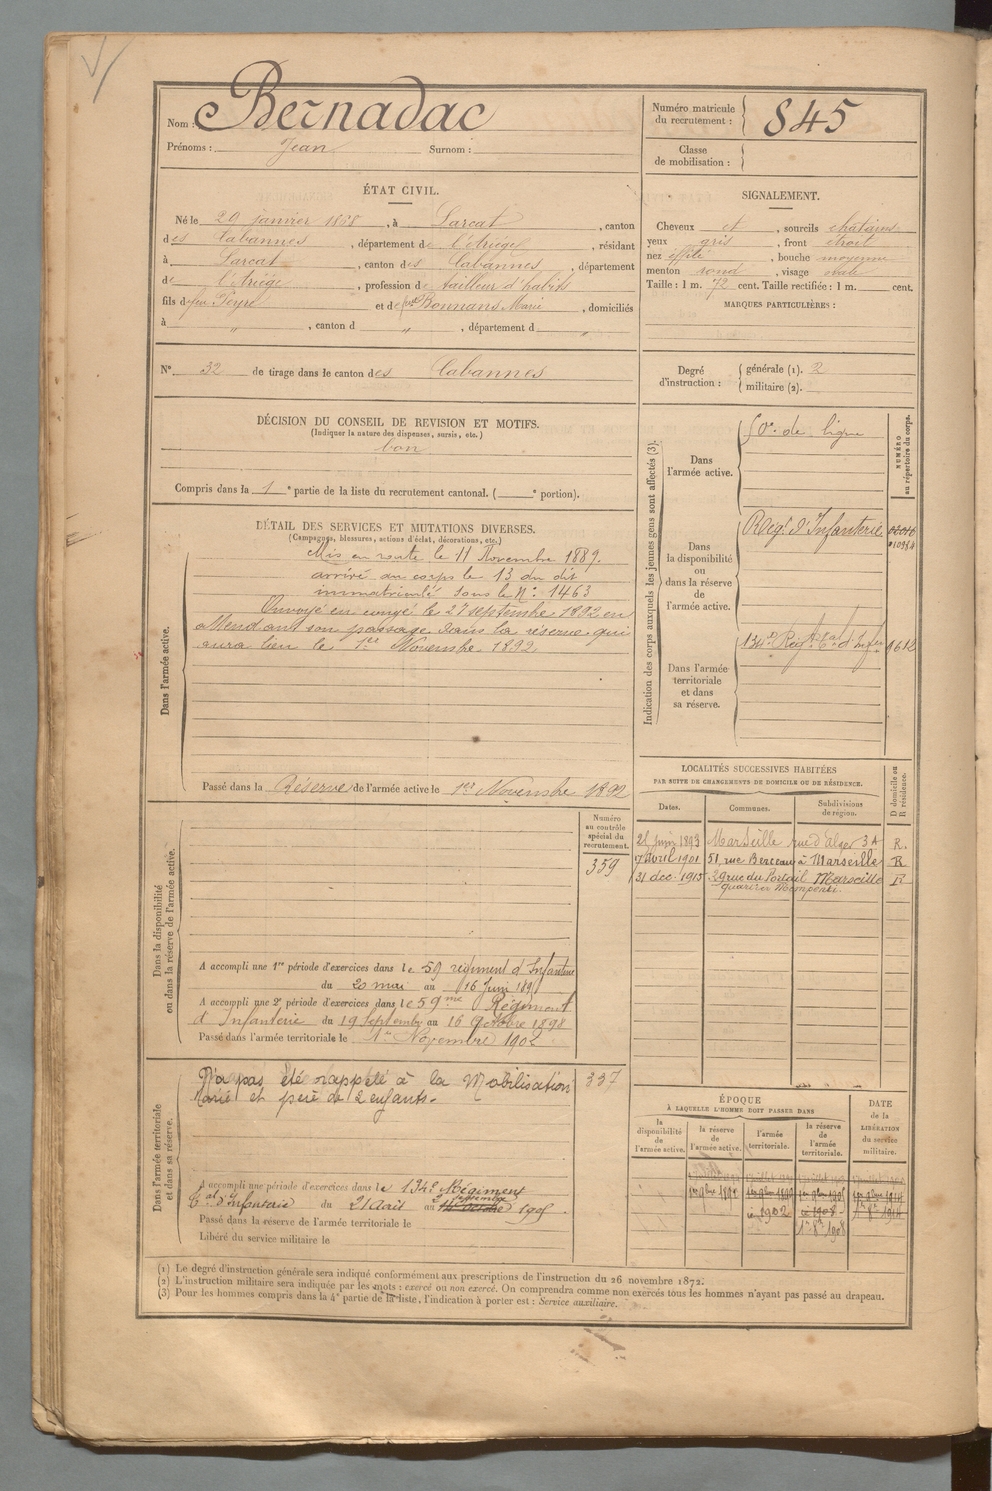 Nom : Bernadac
Prénoms : Jean Surnom :
Numéro matricule du recrutement : 845
Classe de mobilisation :
ÉTAT CIVIL.
Né le 29 janvier 1868, à Larcat, canton
des Cabannes, département de l'Ariège, résidant
à Larcat, canton des Cabannes, département
de l'Ariège, profession de tailleur d'habits
fils de feu Peyre et de Bonnans Marie, domiciliés
à " , canton d " , département d "
SIGNALEMENT.
Cheveux et , sourcils chatains
yeux gris , front étroit
nez effilé , bouche moyenne
menton rond , visage ovale
Taille : 1 m. 72 cent. Taille rectifiée : 1 m. cent.
MARQUES PARTICULIÈRES :
N° 32 de tirage dans le canton des Cabannes
Degré d'instruction : générale (1). 2
militaire (2).
DÉCISION DU CONSEIL DE REVISION ET MOTIFS.
(Indiquer la nature des dispenses, sursis, etc.)
bon
Compris dans la 1e partie de la liste du recrutement cantonal. ( e portion).
DÉTAIL DES SERVICES ET MUTATIONS DIVERSES.
(Campagnes, blessures, actions d'éclat, décorations, etc.)
Dans l'armée active.
Mis en route le 11 Novembre 1889.
arrivé au corps le 13 du dit
immatriculé sous le N°: 1463
Envoyé en congé le 27 septembre 1892 en
attendant son passage dans la réserve qui
aura lieu le 1er Novembre 1892
Passé dans la Réserve de l'armée active le 1er Novembre 1892
Indication des corps auxquels les jeunes gens sont affectés (3).
NUMÉRO au répertoire du corps.
Dans l'armée active.
de ligne
Dans la disponibilité ou dans la réserve de l'armée active.
Régt d'Infanterie
Dans l'armée territoriale et dans sa réserve.
134e Régt tal d'Infie 1612
LOCALITÉS SUCCESSIVES HABITÉES
PAR SUITE DE CHANGEMENTS DE DOMICILE OU DE RÉSIDENCE.
Dates. Communes. Subdivisions de région. D domicile ou R résidence.
21 Juin 1893 Marseille rue d'Alger 3 A R.
7 avril 1901 51, rue Berceau à Marseille R
31 dec. 1915 29 rue du Portail Marseille R
quartier Mompenti.
Dans la disponibilité ou dans la réserve de l'armée active.
Numéro au contrôle spécial du recrutement.
359
A accompli une 1re période d'exercices dans le 59 régiment d'Infanterie
du 20 mai au 16 Juin 189
A accompli une 2e période d'exercices dans le 59me Régiment
d'Infanterie du 19 Septembre au 16 Octobre 1898
Passé dans l'armée territoriale le 1er Novembre 1902
Dans l'armée territoriale et dans sa réserve.
337
N'a pas été rappelé à la Mobilisation
Marié et père de 2 enfants.
A accompli une période d'exercices dans le 134e Régiment
tal d'Infanterie du 21 Avril au 1905
Passé dans la réserve de l'armée territoriale le
Libéré du service militaire le
ÉPOQUE
À LAQUELLE L'HOMME DOIT PASSER DANS
la disponibilité de l'armée active.
la réserve de l'armée active.
l'armée territoriale.
la réserve de l'armée territoriale.
DATE de la LIBÉRATION du service militaire.
1902 1908 1914
1908
(1) Le degré d'instruction générale sera indiqué conformément aux prescriptions de l'instruction du 26 novembre 1872.
(2) L'instruction militaire sera indiquée par les mots : exercé ou non exercé. On comprendra comme non exercés tous les hommes n'ayant pas passé au drapeau.
(3) Pour les hommes compris dans la 4e partie de la liste, l'indication à porter est : Service auxiliaire.